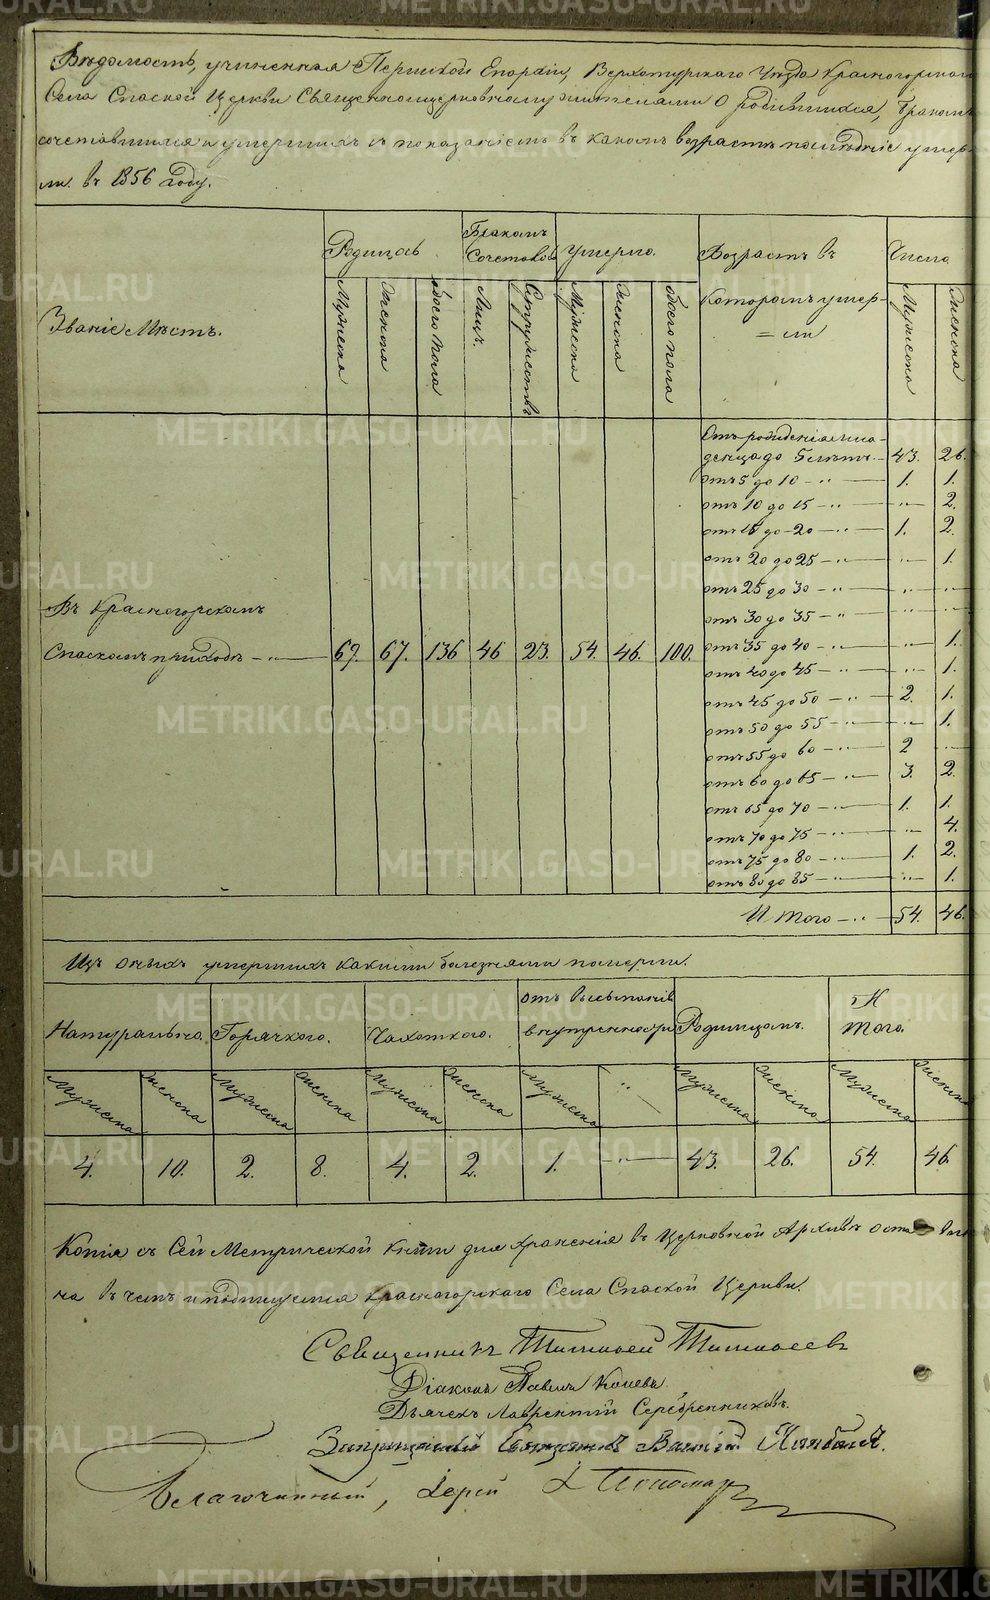 Ведомость, учиненная Пермской Епархіи, Верхотурскаго Уезда Красногорскаго
Села Спаской Церкви Священноцерковнослужителями О родившихся, браком
сочетавшихся и умерших съ показаніемъ въ какомъ возрасте последніе умер-
ли въ 1856 году.
Званіе Местъ.
Родилось
Бракомъ Сочетовал
Умерло.
Возрастъ въ
Которомъ умер-
= ли
Числа
Мужеска
Женска
обоего пола
Лицъ.
Супружествъ
Мужеска
Женска
обоего пола
Мужеска
Женска
Отъ рожденія мла-
денца до 5 летъ 43. 26.
отъ 5 до 10 - " 1. 1.
отъ 10 до 15 - " " 2.
отъ 15 до 20 - " 1. 2.
отъ 20 до 25 - " " 1.
отъ 25 до 30 - " " "
отъ 30 до 35 - " " "
Въ Красногорскомъ
Спаскомъ приходе - " 69. 67. 136 46 23. 54. 46. 100.
отъ 35 до 40 - " " 1.
отъ 40 до 45 - " " 1.
отъ 45 до 50 - " 2. 1.
отъ 50 до 55 - " " 1.
отъ 55 до 60 - " 2 "
отъ 60 до 65 - " 3. 2.
отъ 65 до 70 - " 1. 1.
отъ 70 до 75 - " " 4.
отъ 75 до 80 - " 1. 2.
отъ 80 до 85 - " " 1.
И того - " 54. 46.
Изъ оныхъ умершихъ какими болезнями померли.
Натурально. Горячкою. Чахоткою. от внутренности Родимцомъ. И того.
Мужеска Женска Мужеска Женска Мужеска Женска Мужеска " Мужеска Женска Мужеска Женска
4. 10. 2. 8. 4. 2. 1. " 43. 26. 54. 46.
Копія съ Сей Метрической книги для храненія въ Церковной Архиве
на въ чемъ и подпишемся Красногорскаго Села Спаской Церкви.
Священникъ Тимофей Тимофеевъ
Діаконъ Павелъ Коневъ
Дьячекъ Лаврентій Серебренниковъ.
Запрещенный Василій
Благочинный, Іерей І Пономар
METRIKI.GASO-URAL.RU